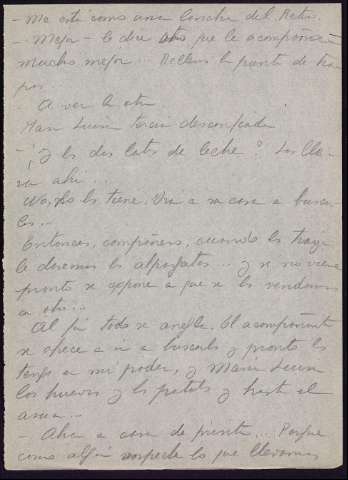 - Me está como una lancha del Retiro.
- Mejor - le dice otro que le acompaña -
mucho mejor... Rellena la punta de tra
pos.
- A ver la otra
María Luisa tercia desconfiada
- ¿Y los dos latas de leche? Las lle
va ahí...
No, los tiene. Van a su casa a buscar
los...
Entonces, compañero, cuando los traiga
le daremos las alpargatas... y si no viene
pronto se expone a que se las vendamos
a otro...
Al fin todo se arregla. El acompañante
se ofrece a ir a buscarlos y pronto los
tengo en mi poder, y María Luisa
los huevos y las patatas y hasta el
arroz...
- Ahora a casa de prisita... Porque
como alguien sospeche lo que llevamos